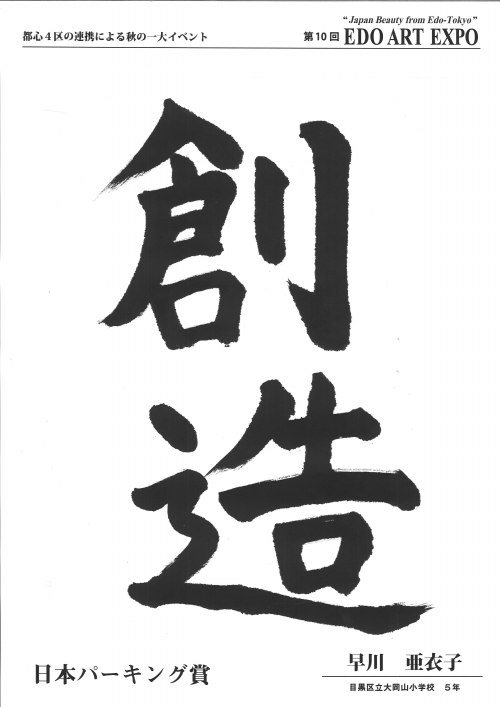 都心４区の連携による秋の一大イベント
"Japan Beauty from Edo-Tokyo"
第10回 EDO ART EXPO
創造
日本パーキング賞
早川 亜衣子
目黒区立大岡山小学校 ５年